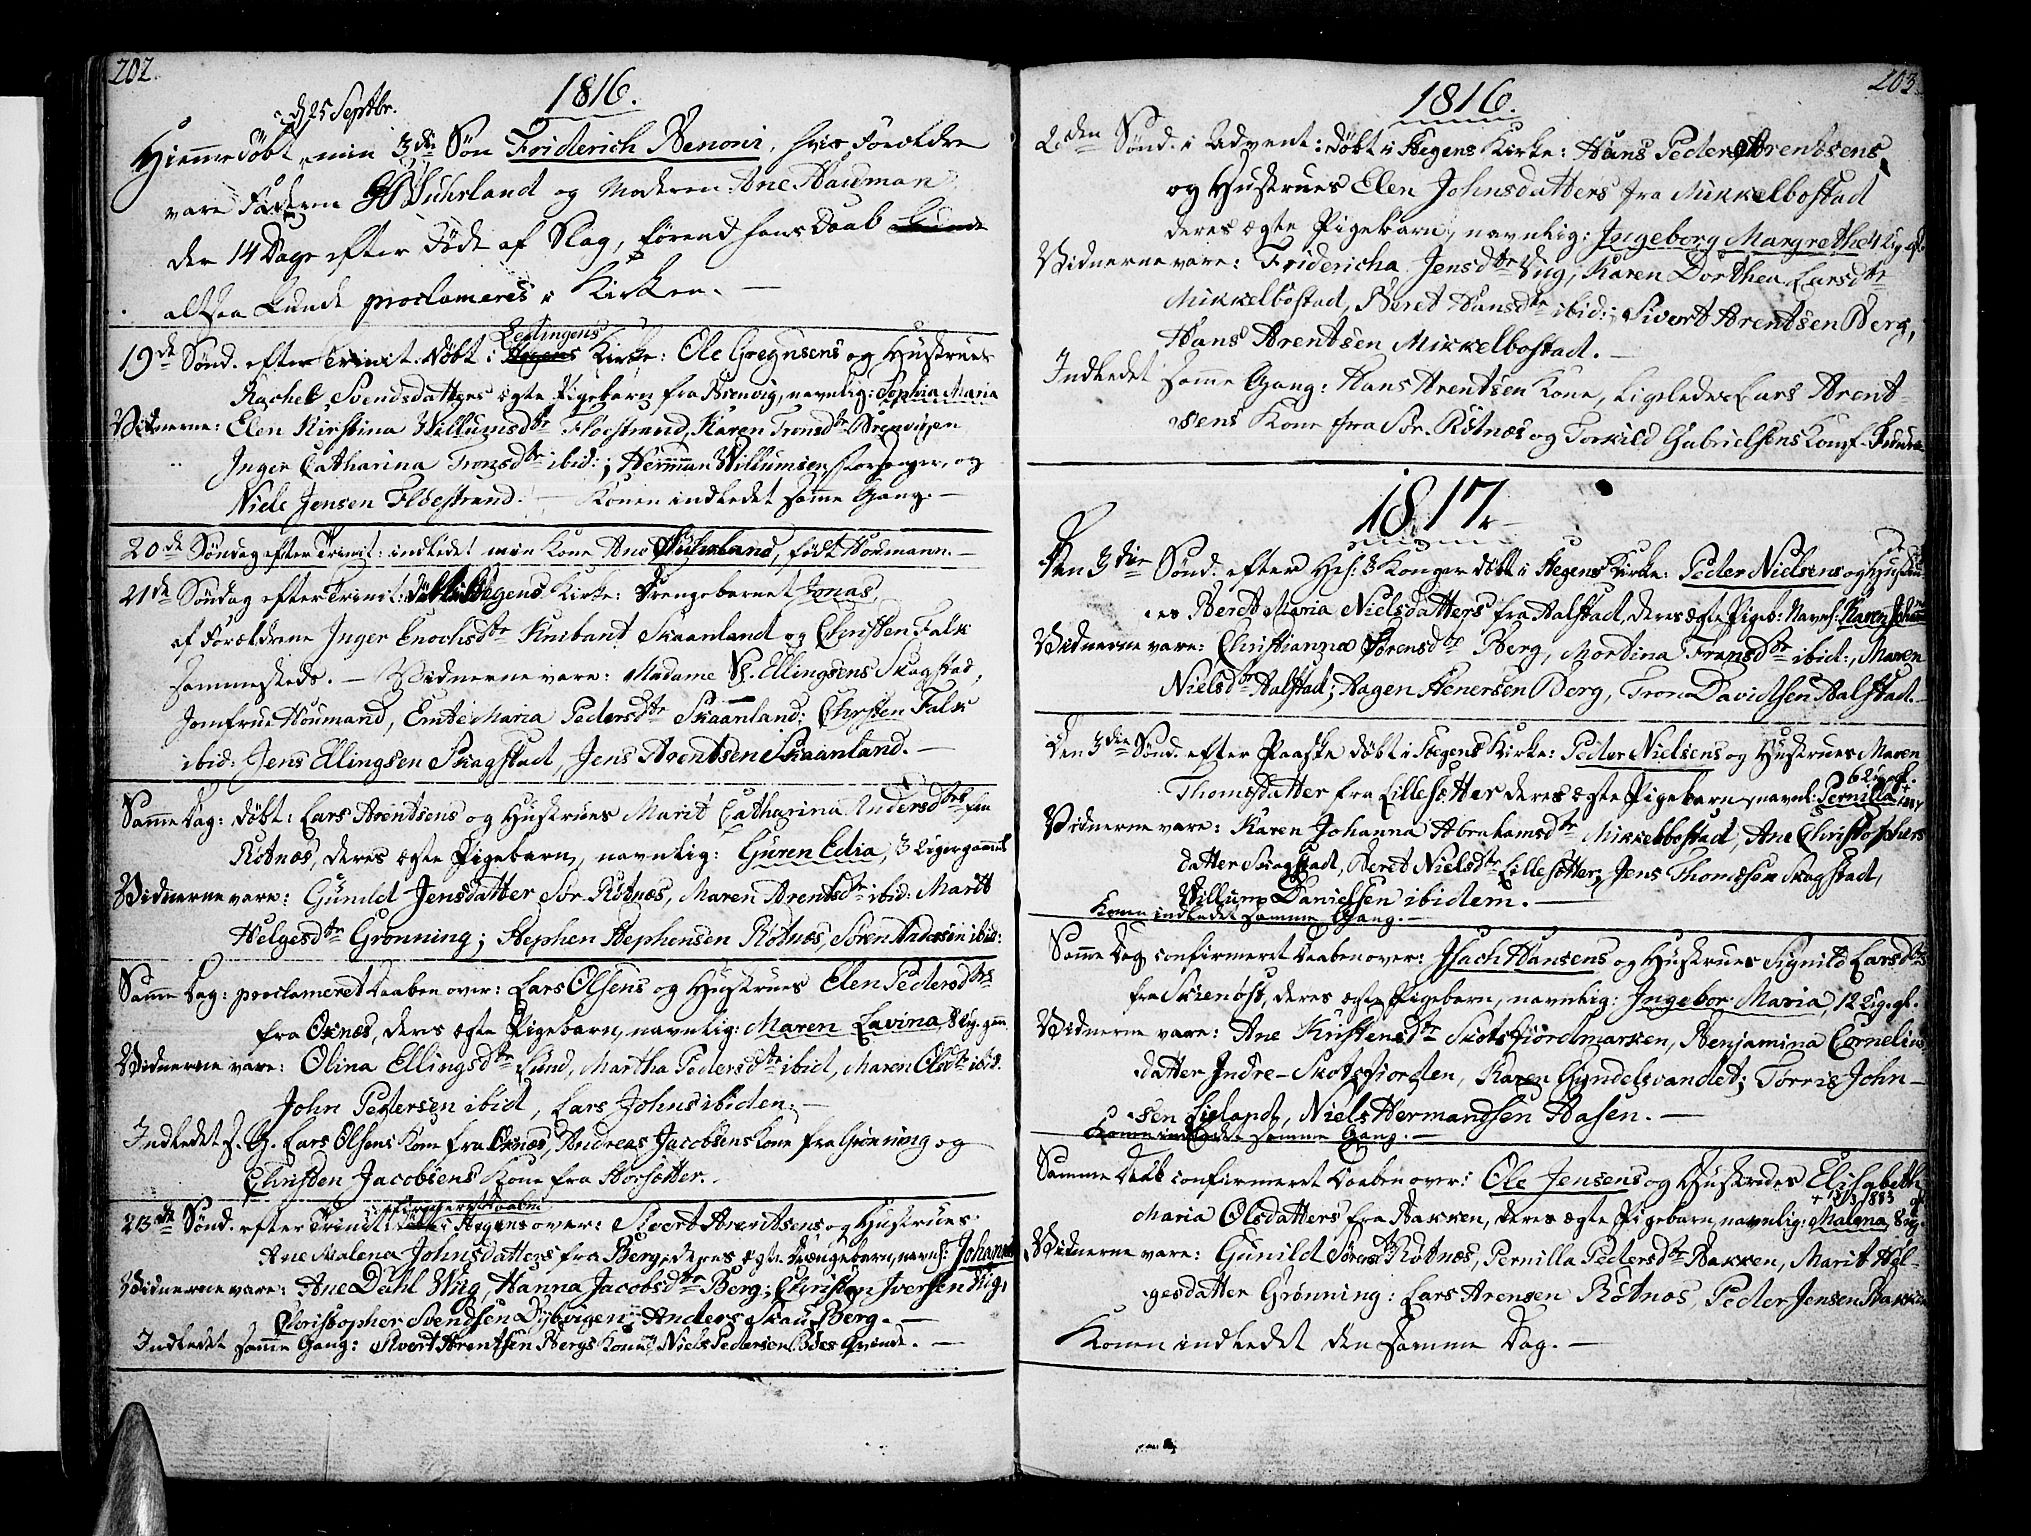 202.
1816.
d 25 Septbr.
Hiemmedöbt min 3die Sön Friderich Benoni, hvis Forældre
vare Faderen Suhrland og Moderen Ane Hauman
der 14 Dage efter döde af Slag, förend hans Daab
altsaa kunde proclameres i Kirken. —
19de Sönd. efter Trinit: döbt i Leilingens Kirke: Ole Gregusens og Hustrues
Rachel Svendsdatters ægte Pigebarn fra Brenvig, navnlig: Sophia Maria
Vidnerne: Elen Kirstina Willumsdtr Floestrand, Karen Tronsdtr Brenvigen
Inger Catharina Tronsdtr ibid:; Herman Willumsen, og
Niels Jensen Floestrand. — Konen indledet samme Gang. —
20de Söndag efter Trinit: indledet min Kone Ane Suhrland, födt Houmann. —
21de Söndag efter Trinit: döbt i Stegens Kirke: Drengebarnet Jonas,
af Forældrene Inger Enochsdtr Knibant Skaanland og Christen Falk
sammesteds. — Vidnerne vare: Madame Sl. Ellingsens Skagstad,
Jomfrue Houmand, Emte Maria Pedersdtr Skaanland; Christen Falk
ibid: Jens Ellingsen Skagstad, Jens Arentsen Skaanland. —
Samme Dag: döbt: Lars Arentsens og Hustrues Marit Catharina Andersdtrs fra
Rötnæs, deres ægte Pigebarn, navnlig: Guren Edia, 3 Uger gammel
Vidnerne vare: Gunild Jensdatter Sör-Rötnæs, Maren Arentsdtr ibid: Marit
Helgesdtr Grönning; Stephen Stephensen Rötnæs, Sören Andersen ibid:
Samme Dag: proclameret Daaben over: Lars Olsens og Hustrues Elen Pedersdtrs
fra Oxnæs, deres ægte Pigebarn, navnlig: Maren Lavina, 8 Ug. gam.
Vidnerne vare: Olina Ellingsdtr Lund, Martha Pedersdtr ibid, Maren Olsdtr ibid.
John Pedersen ibid, Lars Johns ibiden. —
Indledet s. G. Lars Olsens Kone fra Oxnæs, Andreas Jacobsens Kone fra Grönning og
Christen Jacobsens Kone fra Horsætter.
confirmeret Daaben
23de Sönd. efter Trinit: i Stegens over: Sivert Arentsens og Hustrues
Ane Malena Johnsdatters fra Berg, deres ægte Drengebarn, navnl: Johannes
Vidnerne vare: Ane Dahl Vug, Hanna Jacobsdtr Berg; Christen Iversen Vug,
Christopher Svendsen Dybvigen; Anders Skau Berg. —
Indledet samme Gang: Sivert Arentsen Bergs Kone, Niels Pedersen Böes Qvinde. —
203.
1816.
2den Sönd. i Advent: döbt i Stegens Kirke: Hans Peder Arentsens
og Hustrues Elen Johnsdatters fra Mikkelbostad
deres ægte Pigebarn, navnlig: Ingeborg Margrethe 4 Ug. gl.
Vidnerne vare: Fridericha Jensdtr Vug, Karen Dorthea Larsdtr
Mikkelbostad, Beret Hansdtr ibid:; Sivert Arentsen Berg,
Hans Arentsen Mikkelbostad. —
Indledet samme Gang: Hans Arentsen Kone, ligeledes Lars Arent-
sens Kone fra Sör-Rötnæs og Torkild Gabrielsens Kone fra
1817.
Den 3die Sönd. efter Hel. 3 Konger döbt i Stegens Kirke: Peder Nielsens og Hustru-
es Beret Maria Nielsdatters fra Aalstad, deres ægte Pigeb: Navnl: Karen
Vidnerne vare: Christianna Sörensdtr Berg, Mortina Fransdtr ibid:, Maren
Nielsdtr Aalstad; Hagen Henersen Berg, Tron Davidsen Aalstad. —
Den 3die Sönd. efter Paaske döbt i Stegens Kirke: Peder Nielsens og Hustrues Maren
Thomsdatter fra Lillesætter deres ægte Pigebarn, navnl: Pernilla 6 Ug. gl.
Vidnerne vare: Karen Johanna Abrahamsdtr Mikkelbostad, Ane Christophers
datter Skagstad, Beret Nielsdtr Lillesætter; Jens Thomsen Skagstad,
Villum Danielsen ibidem. —
Konen indledet samme Gang. —
Samme Dag confirmeret Daaben over: Isach Hansens og Hustrues Signild Larsdtrs
fra Skienöst, deres ægte Pigebarn, navnlig: Ingebor Maria, 12 Ug. gl.
Vidnerne vare: Ane Kristensdtr Skotsfiordmarken, Benjamina Cornelius
datter Indre-Skotsfiorden, Karen Gyndelsvandet; Torris John-
sen Lieland, Niels Hermandsen Aasen. —
Konen indledet samme Gang. —
Samme Dag confirmeret Daaben over: Ole Jensens og Hustrues Elisabeth
Maria Olsdatters fra Bakken, deres ægte Pigebarn, navnlig: Malena, 8 Ug. gl.
+ 13/3 1883
Vidnerne vare: Gunild Sörensd Rötnæs, Pernilla Pedersdtr Bakken, Marit Hel-
gesdatter Grönning: Lars Arensen Rötnæs, Peder Jensen Bakken
Konen indledet den samme Dag. —